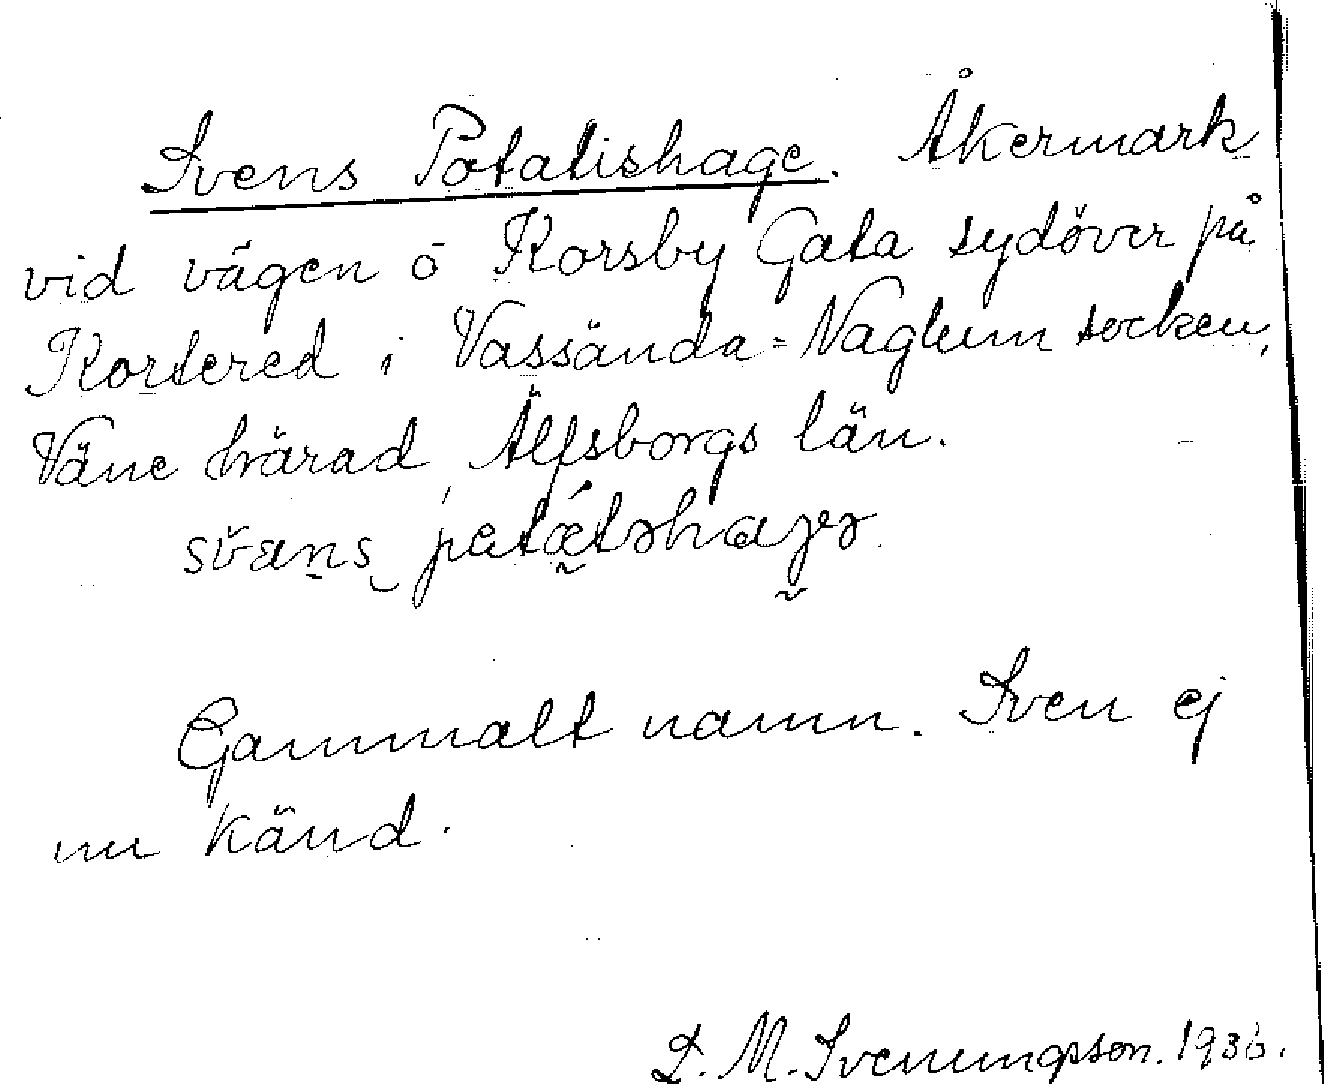 Svens Potatishage. Åkermark
vid vägen ö Korsby Gata sydöver på
Kortered i Vassända=Naglum socken,
Väne härad, Älfsborgs län.
Gammalt namn. Sven ej
nu känd.
D. M. Svenungsson. 1936.